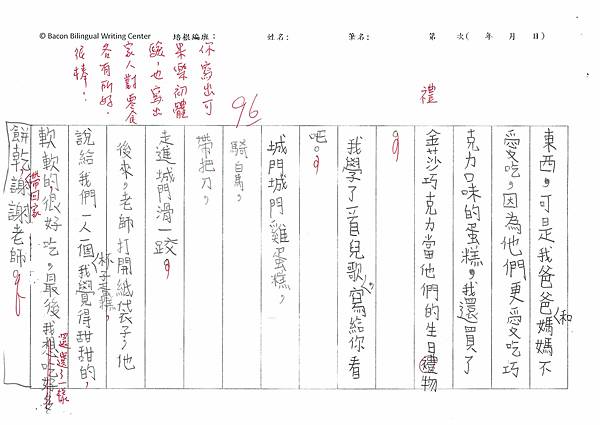 © Bacon Bilingual Writing Center 培根編班： 姓名： 筆名： 第 次( 年 月 日)
東西，可是我爸爸和媽媽不
愛吃，因為他們更愛吃巧
克力口味的蛋糕，我還買了
金莎巧克力當他們的生日禮物
禮
。
我學了一首兒歌，寫給你看
吧。
城門城門雞蛋糕，
騎白馬，
帶把刀，
走進城門滑一跤。
後來，老師打開紙袋子，他
說給我們一人一個杯子蛋糕，我覺得甜甜的，
軟軟的，很好吃，最後我
還選了一樣
餅乾帶回家，謝謝老師。
96
你寫出可
果樂初體
驗，也寫出
家人對零食
各有所好，
很棒！